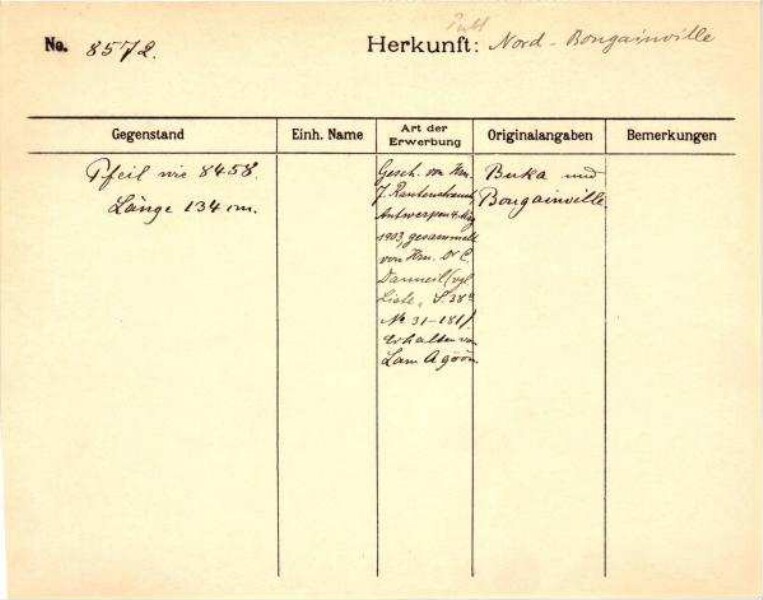 No. 8572. Herkunft: Nord-Bougainville
Gegenstand Einh. Name Art der Erwerbung Originalangaben Bemerkungen
Pfeil wie 8458.
Länge 134 cm.
Gesch. von Hrn.
J. Rautenstrauch,
Antwerpen
1903, gesammelt
von Hrn. Dr C.
Danneil (vgl.
Liste, S. 38
No 31-181).
Erhalten von
Lam
Buka und
Bougainville